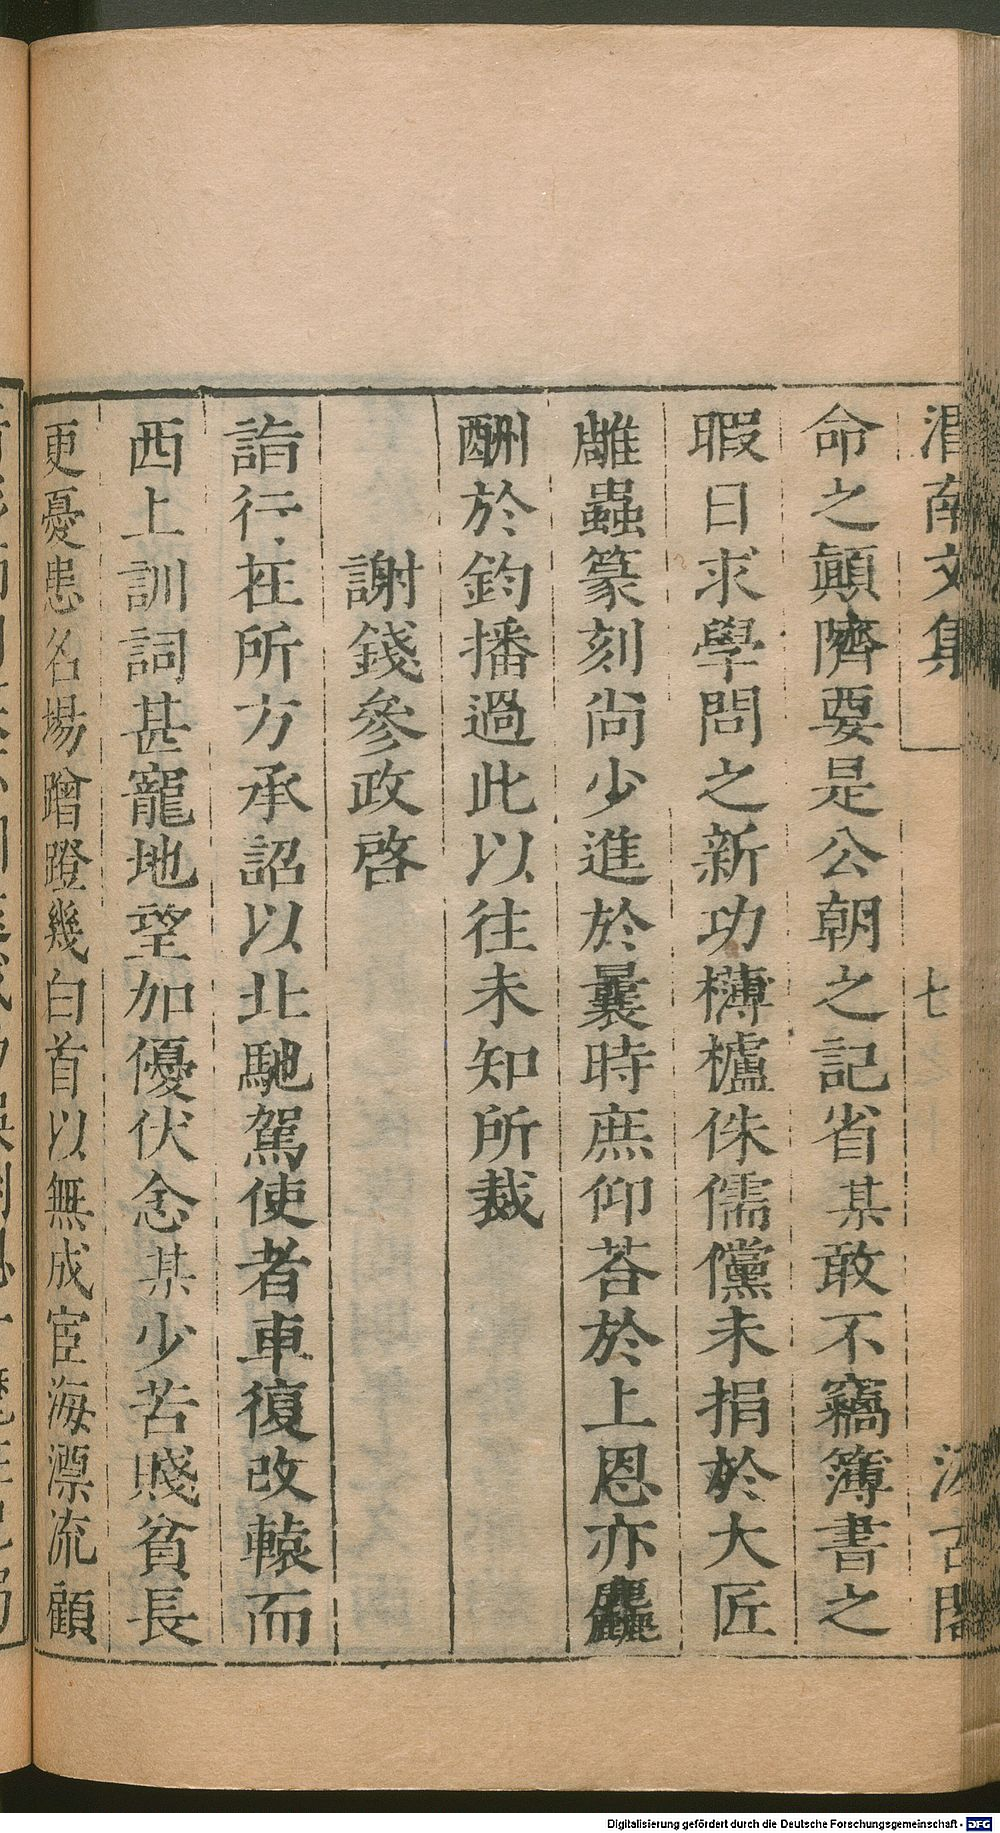 渭南文集
七
汲古閣
命之顛隮要是公朝之記省某敢不竊簿書之
暇日求學問之新功欂櫨侏儒儻未捐於大匠
雕蟲篆刻尚少進於曩時庶仰荅於上恩亦麤
酬於鈞播過此以往未知所裁
謝錢參政啓
詣行在所方承詔以北馳駕使者車復改轅而
西上訓詞甚寵地望加優伏念某少苦賤貧長
更憂患名場蹭蹬幾白首以無成宦海漂流顧
Digitalisierung gefördert durch die Deutsche Forschungsgemeinschaft - DFG